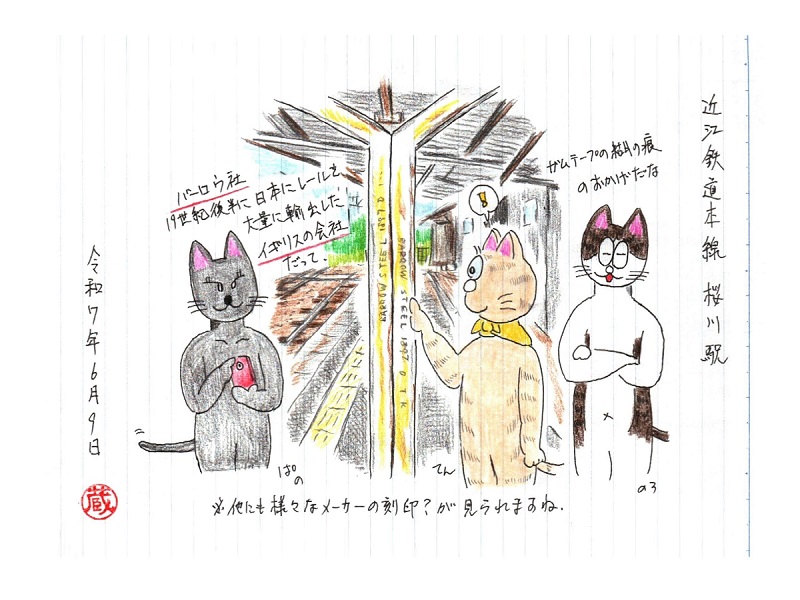 近江鉄道本線 桜川駅
ガムテープの糊の痕
のおかげだな
バーロウ社
19世紀後半に日本にレールを
大量に輸出した
イギリスの会社
だって、
BARROW STEEL 1897 O T K
ぱの
てん
のろ
※他にも様々なメーカーの刻印?が見られますね.
令和7年6月9日
蔵